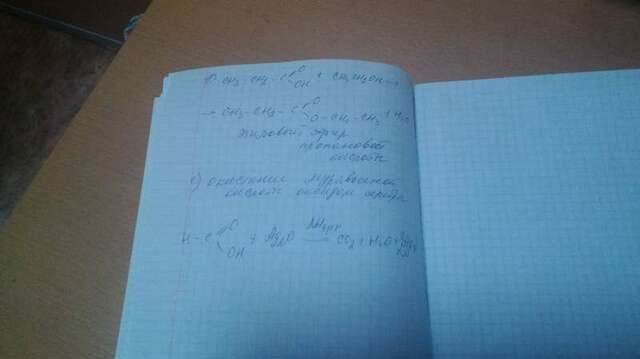 CH3-CH2-C=O OH + CH3CH2OH →
→ CH3-CH2-C=O O-CH2-CH3 + H2O
этиловый эфир
пропановой
кислоты
окисление муравьиной
кислоты оксидом серебра
H-C=O OH + Ag2O → CO2 + H2O +